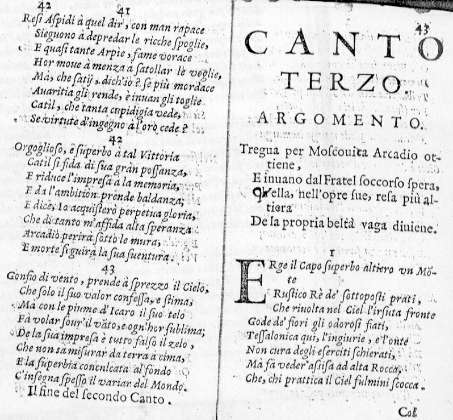 42
41
Resi Aspidi à quel dir, con man rapace
Sieguono à depredar le ricche spoglie,
E quasi tante Arpie, fame vorace
Hor move à menza à satollar le voglie,
Ma, che satij, dich'iò è se più mordace
Avaritia gli rende, è invan gli toglie
Catil, che tanta cupidigia vede,
Se virtute d'ingegno à l'orò cede?
42
Orgoglioso, e superbo à tal Vittoria
Catil si fida di sua gran possanza,
E riduce l'impresa à la memoria,
E da l'ambition prende baldanza;
E dice, Io acquisterò perpetua gloria,
Che di tanto m'affida alta speranza
Arcadiò perirà sotto le mura,
E morte siguirà la sua sventura.
43
Gonfio di vento, prende à sprezzo il Cielo,
Che solo il suo valor confessa, e stima;
Ma con le piume d'Icaro il suo telo
Fà volar sour'il vãto, e ogn'hor sublima;
De la sua impresa è tutto falso il zelo,
Che non sà misurar da terra à cima,
E la superbia conculcata al fondo
C'insegna spesso il variar del Mondo.
Il fine del secondo Canto.
43
CANTO
TERZO.
ARGOMENTO.
Tregua per Moscouita Arcadio ot-
tiene,
E inuano dal Fratel soccorso spera,
Quella, nell'opre sue, resa più al-
tiera
De la propria beltà vaga diuiene.
1
ERge il Capo superbo altiero vn Mõ-
te
Rustico Rè de' sottoposti prati,
Che riuolta nel Ciel l'irsuta fronte
Gode de' fiori gli odorosi fiati,
Tessalonica qui, l'ingiurie, e l'onte
Non cura degli eserciti schierati,
Ma fa veder'assisa ad alta Rocca,
Che, chi prattica il Ciel fulmini scocca.
Col